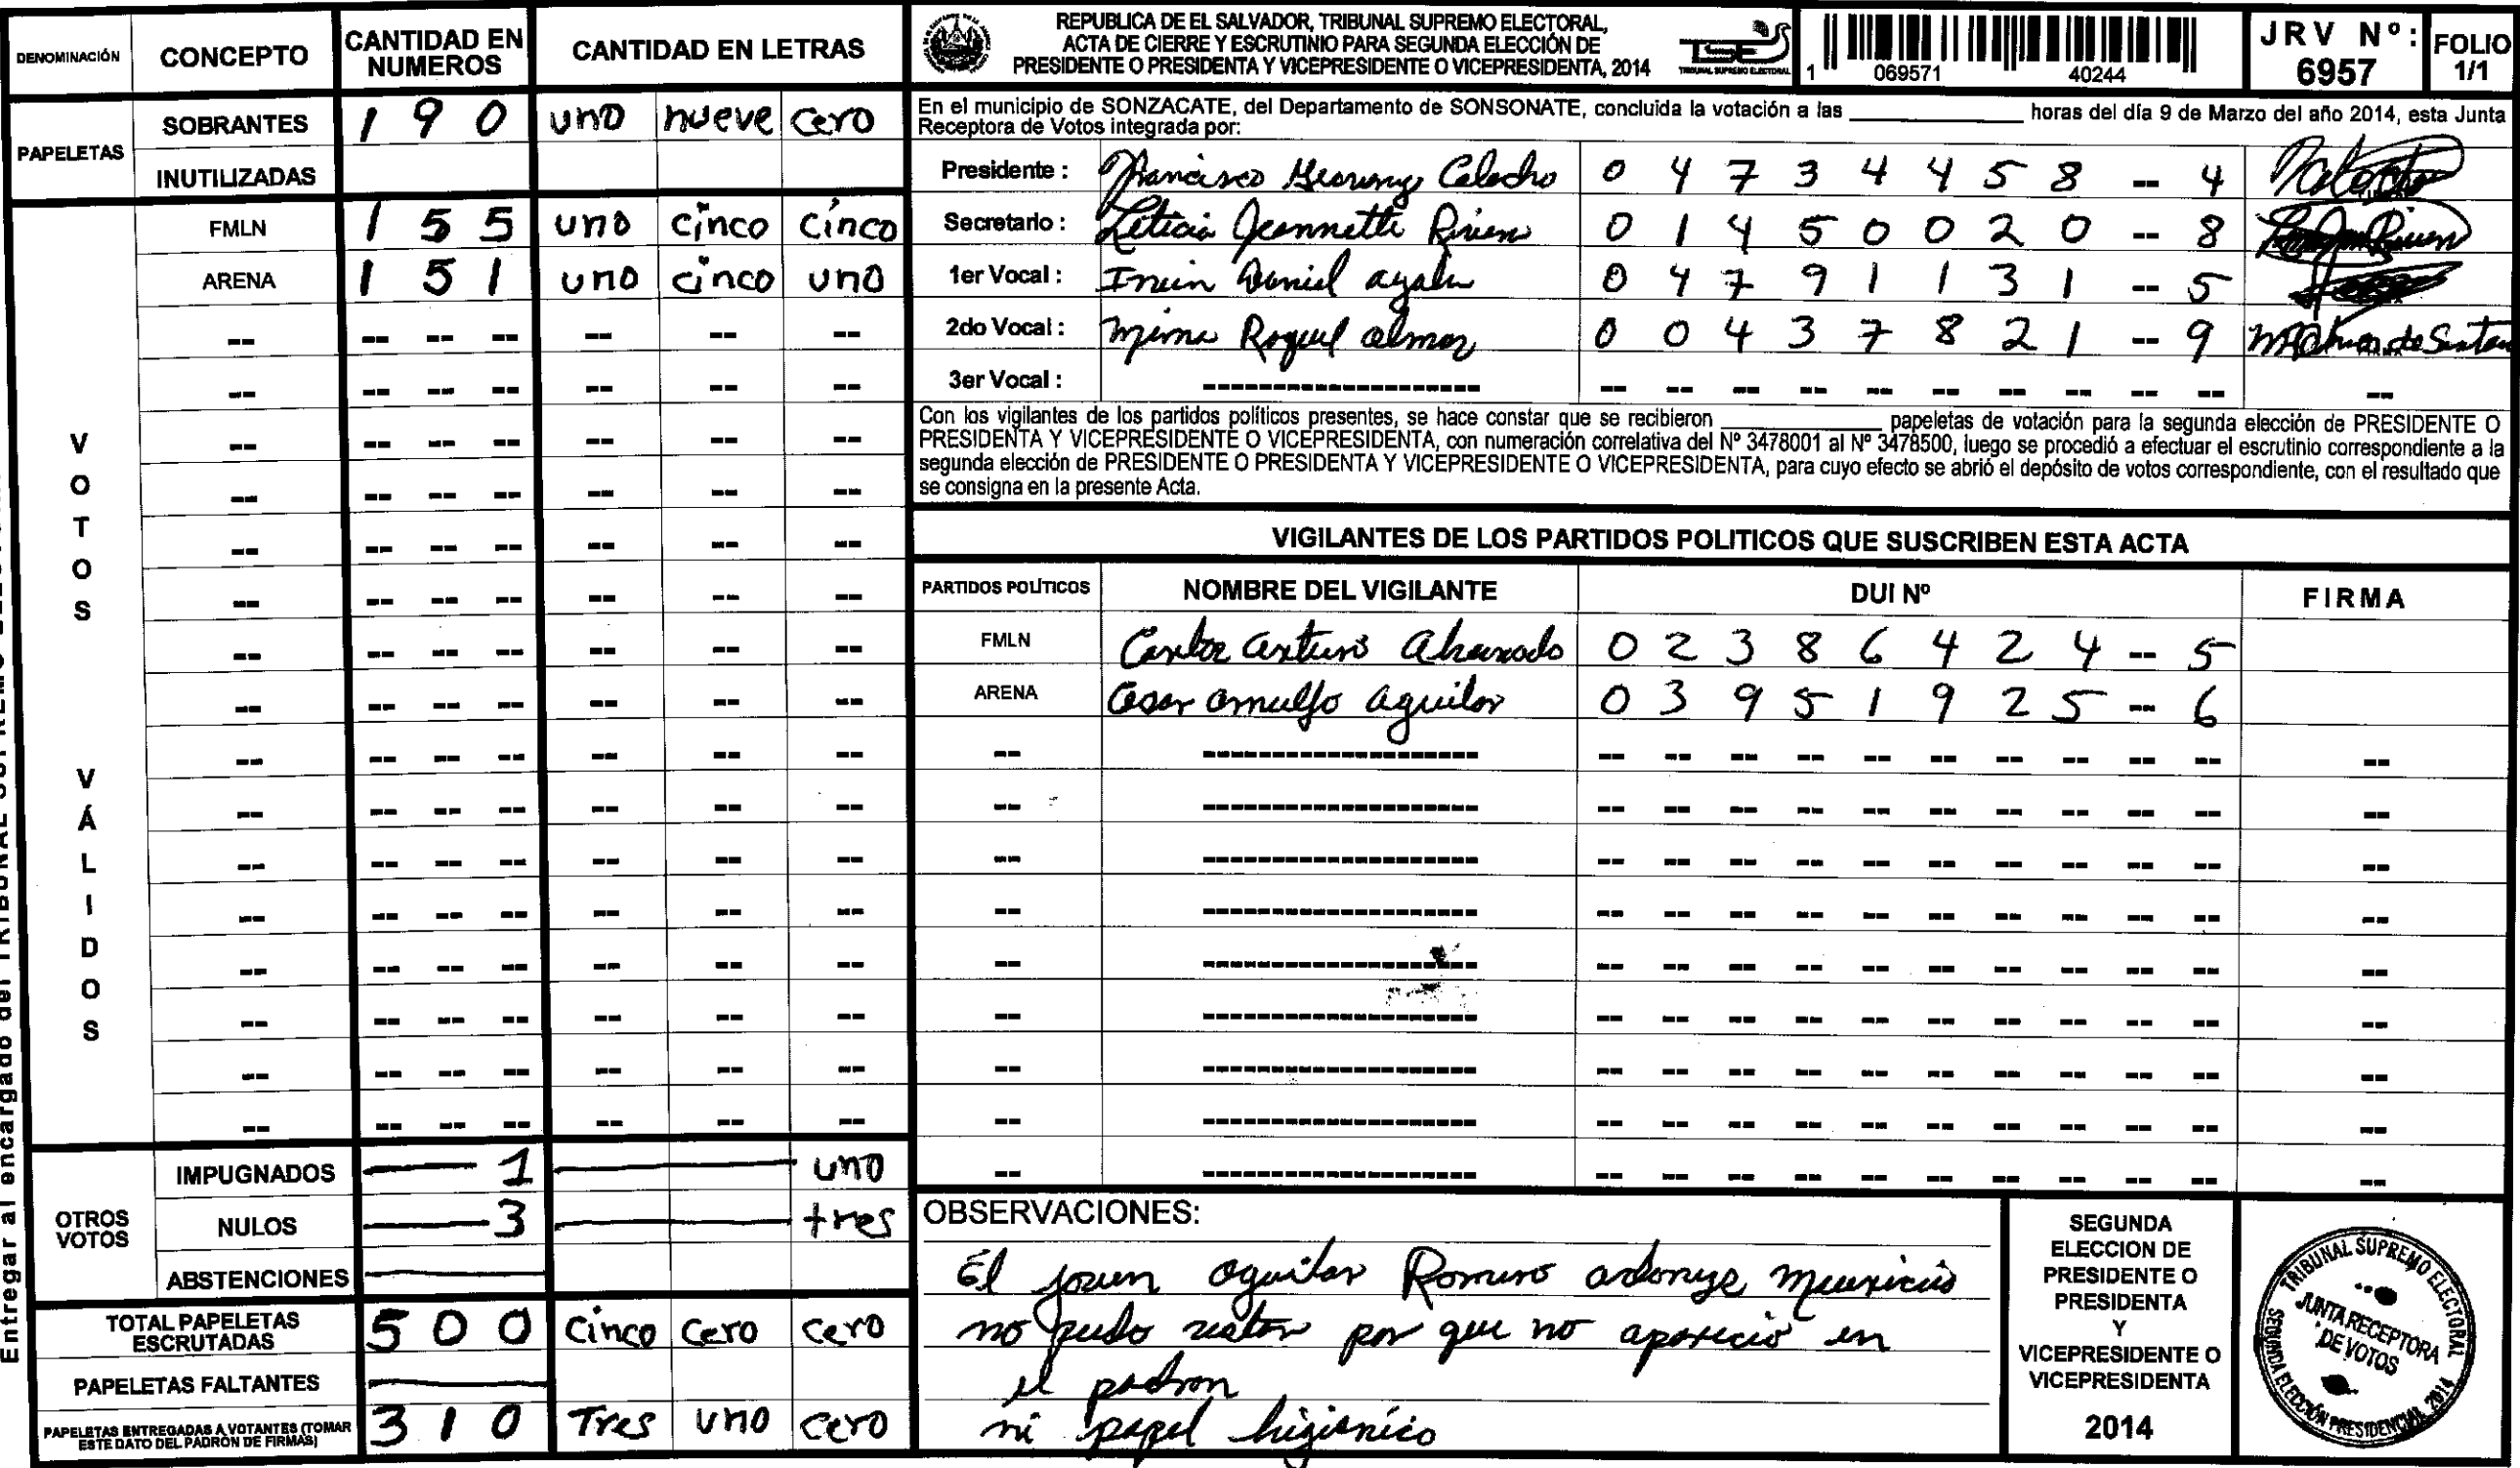 DENOMINACIÓN CONCEPTO CANTIDAD EN NUMEROS CANTIDAD EN LETRAS
PAPELETAS
SOBRANTES 1 9 0 uno nueve cero
INUTILIZADAS
VOTOS VÁLIDOS
FMLN 1 5 5 uno cinco cinco
ARENA 1 5 1 uno cinco uno
OTROS VOTOS
IMPUGNADOS 1 uno
NULOS 3 tres
ABSTENCIONES
TOTAL PAPELETAS ESCRUTADAS 5 0 0 cinco cero cero
PAPELETAS FALTANTES
PAPELETAS ENTREGADAS A VOTANTES (TOMAR ESTE DATO DEL PADRÓN DE FIRMAS) 3 1 0 Tres uno cero
Entregar al encargado del TRIBUNAL SUPREMO
REPUBLICA DE EL SALVADOR, TRIBUNAL SUPREMO ELECTORAL,
ACTA DE CIERRE Y ESCRUTINIO PARA SEGUNDA ELECCIÓN DE
PRESIDENTE O PRESIDENTA Y VICEPRESIDENTE O VICEPRESIDENTA, 2014
TSE
TRIBUNAL SUPREMO ELECTORAL
1 069571 40244
JRV Nº: 6957
FOLIO 1/1
En el municipio de SONZACATE, del Departamento de SONSONATE, concluida la votación a las ____ horas del día 9 de Marzo del año 2014, esta Junta
Receptora de Votos integrada por:
Presidente : Francisco 0 4 7 3 4 4 5 8 -- 4
Secretario : Leticia Jeannette 0 1 4 5 0 0 2 0 -- 8
1er Vocal : Daniel ayala 0 4 7 9 1 1 3 1 -- 5
2do Vocal : Raquel 0 0 4 3 7 8 2 1 -- 9
3er Vocal :
Con los vigilantes de los partidos políticos presentes, se hace constar que se recibieron ____ papeletas de votación para la segunda elección de PRESIDENTE O
PRESIDENTA Y VICEPRESIDENTE O VICEPRESIDENTA, con numeración correlativa del Nº 3478001 al Nº 3478500, luego se procedió a efectuar el escrutinio correspondiente a la
segunda elección de PRESIDENTE O PRESIDENTA Y VICEPRESIDENTE O VICEPRESIDENTA, para cuyo efecto se abrió el depósito de votos correspondiente, con el resultado que
se consigna en la presente Acta.
VIGILANTES DE LOS PARTIDOS POLITICOS QUE SUSCRIBEN ESTA ACTA
PARTIDOS POLÍTICOS NOMBRE DEL VIGILANTE DUI Nº FIRMA
FMLN Carlos arturo 0 2 3 8 6 4 2 4 -- 5
ARENA Cesar arnulfo aguilar 0 3 9 5 1 9 2 5 -- 6
OBSERVACIONES:
El joven aguilar Romero adonys mauricio
no pudo votar por que no aparecio en
el padron
ni papel higienico
SEGUNDA
ELECCION DE
PRESIDENTE O
PRESIDENTA
Y
VICEPRESIDENTE O
VICEPRESIDENTA
2014
TRIBUNAL SUPREMO ELECTORAL
JUNTA RECEPTORA
DE VOTOS
SEGUNDA ELECCIÓN PRESIDENCIAL 2014